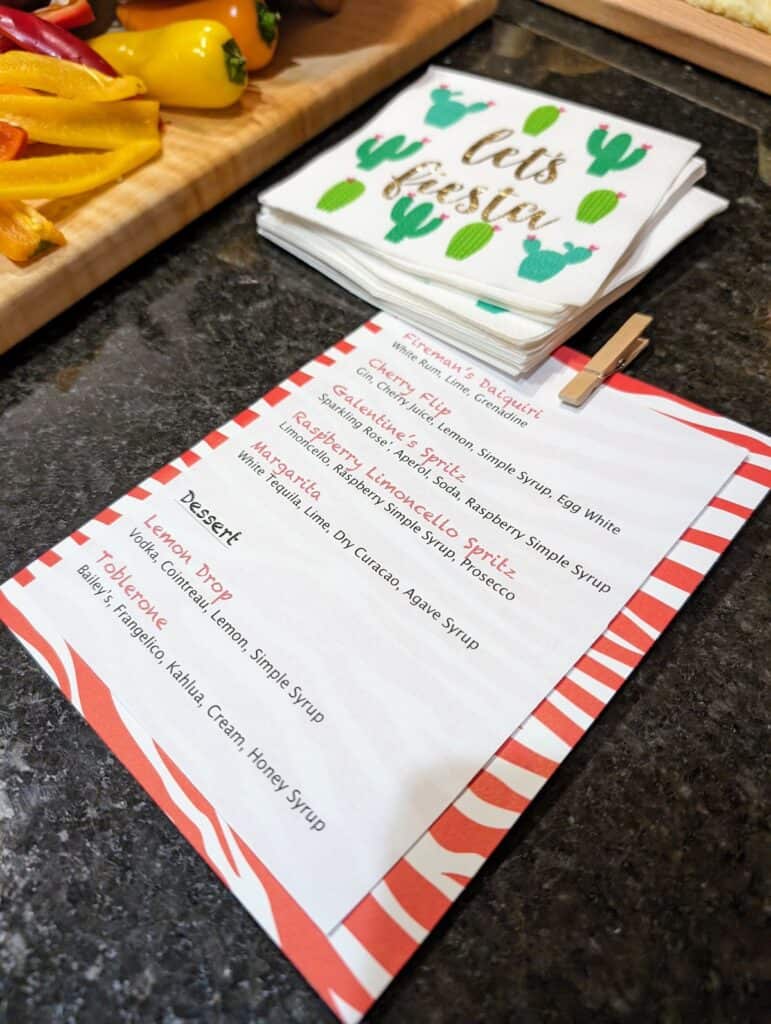 let's
fiesta
Fireman's Daiquiri
White Rum, Lime, Grenadine
Cherry Flip
Gin, Cherry Juice, Lemon, Simple Syrup, Egg White
Galentine's Spritz
Sparkling Rose', Aperol, Soda, Raspberry Simple Syrup
Raspberry Limoncello Spritz
Limoncello, Raspberry Simple Syrup, Prosecco
Margarita
White Tequila, Lime, Dry Curacao, Agave Syrup
Dessert
Lemon Drop
Vodka, Cointreau, Lemon, Simple Syrup
Toblerone
Bailey's, Frangelico, Kahlua, Cream, Honey Syrup